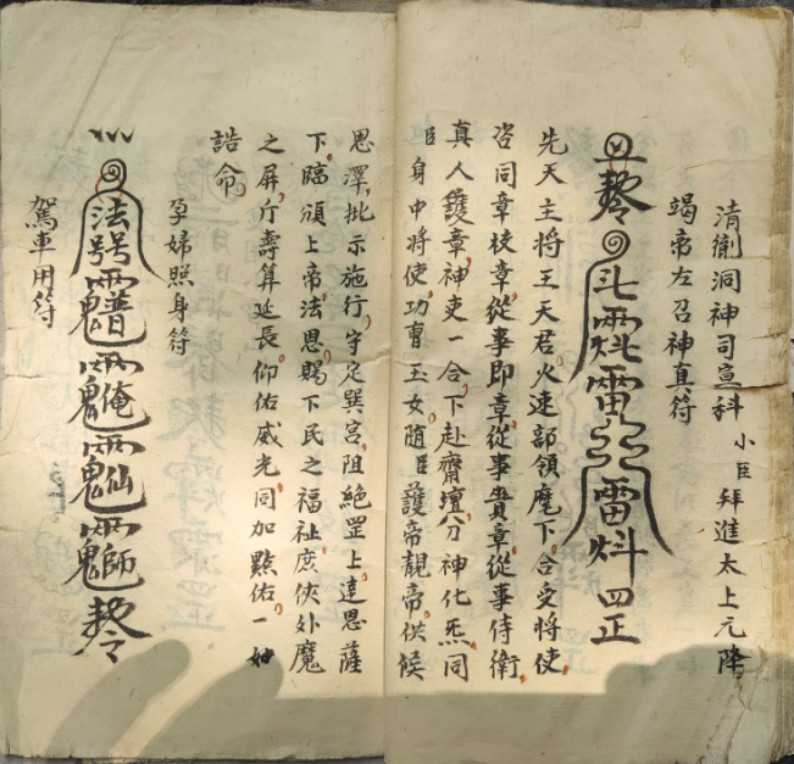 清衛洞神司宣科 小臣 拜進太上元降
竭帝左召神真符
四正
先天主將王天君火速部領麾下合受將使
咨同章校章從事即章從事賫章從事侍衛
真人護章神吏一合下赴齋壇分神化炁同
臣身中將使功曹玉女随臣護帝覩帝供候
恩澤批示施行守定巽宮阻絕罡上達恩薩
下臨頒上帝法恩賜下民之福祉庶俠外魔
之屏斤壽算延長仰佑威光同加黙佑一如
誥命
孕婦照身符
法號
駕車用符